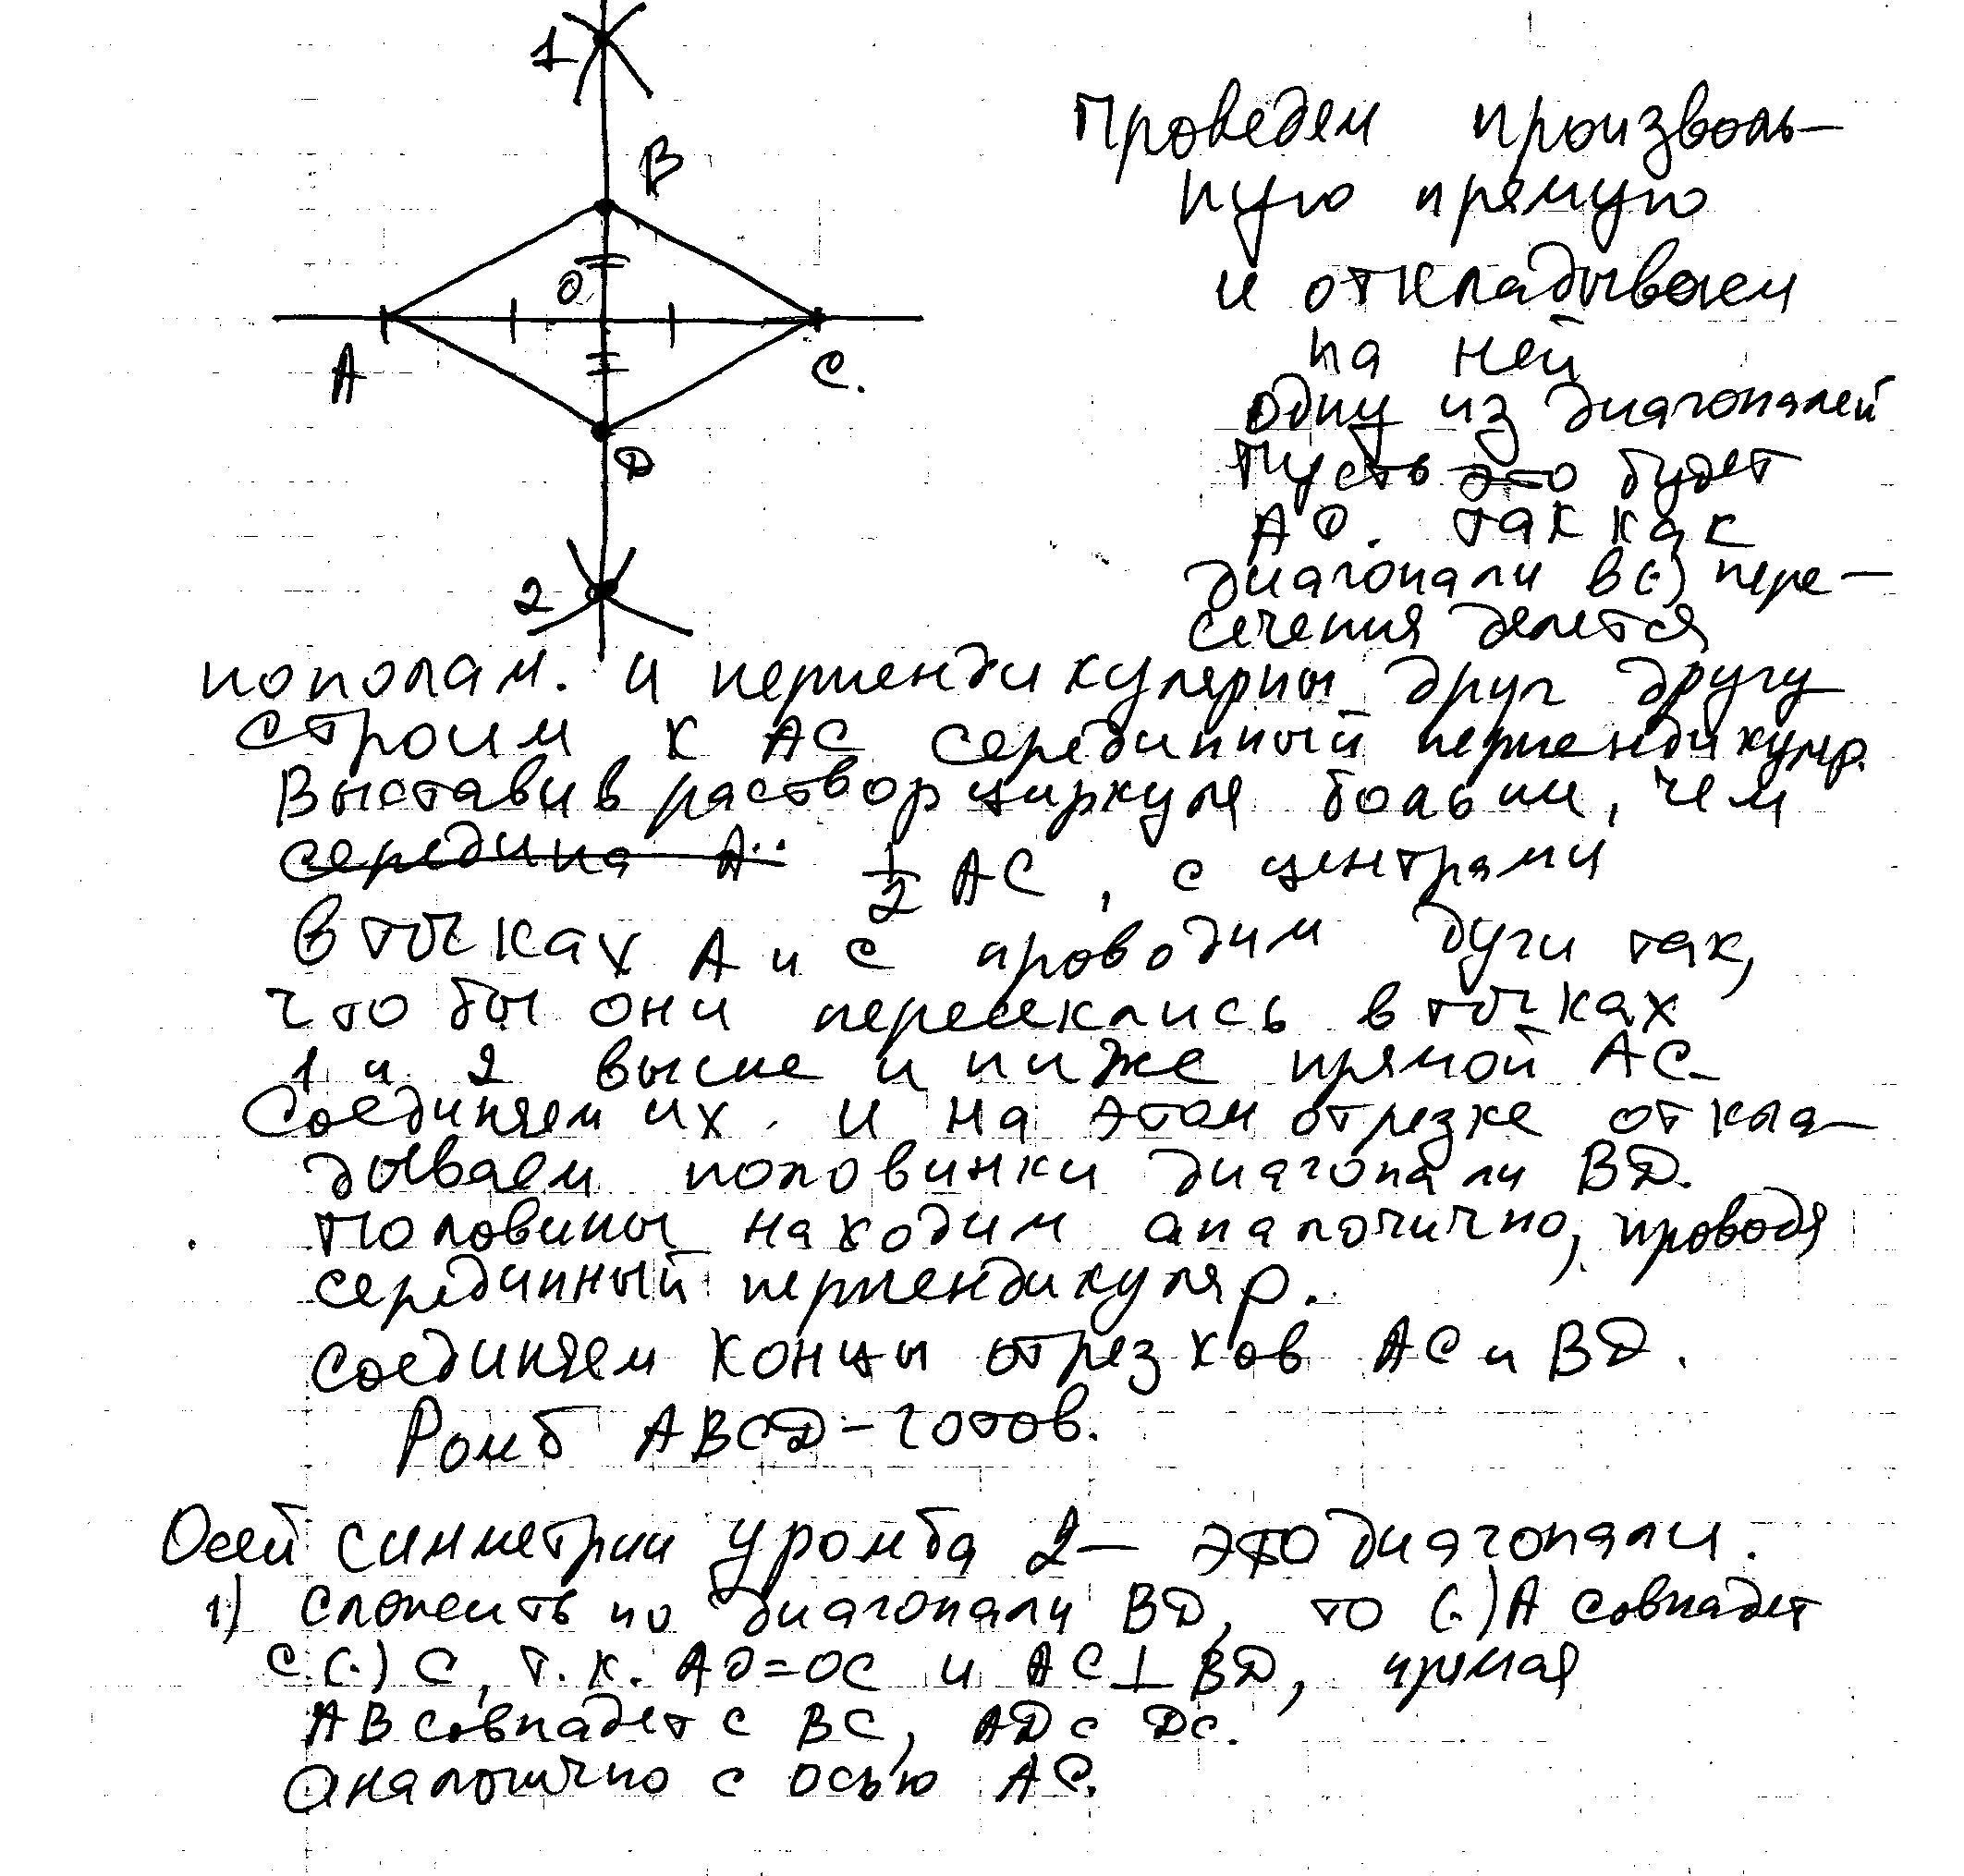 1
B
O
A
C.
D
2
Проведем произволь-
ную прямую
и откладываем
на ней
одну из диагоналей
Пусть это будет
АО. так как
диагонали в (·) пере-
сечения делется
пополам. и перпендикулярны друг другу
строим к АС серединный перпендикуляр.
Выставив раствор циркуля больши, чем
середина А 1/2 АС, с центрами
в точках А и С проводим дуги так,
что бы они пересеклись в точках
1 и 2 выше и ниже прямой АС.
Соединяем их. и на этом отрезке откла-
дываем половинки диагонали BD.
Половины находим аналогично, проводя
серединный перпендикуляр.
Соединяем концы отрезков АС и BD.
Ромб ABCD - готов.
Осей симметрии у ромба 2 - это диагонали.
1) сложить по диагонали BD, то (·) А совпадет
с (·) С, т.к. АО=ОС и АС⊥BD, прямая
АВ совпадет с ВС, AD с DC.
Аналогично с осью АС.